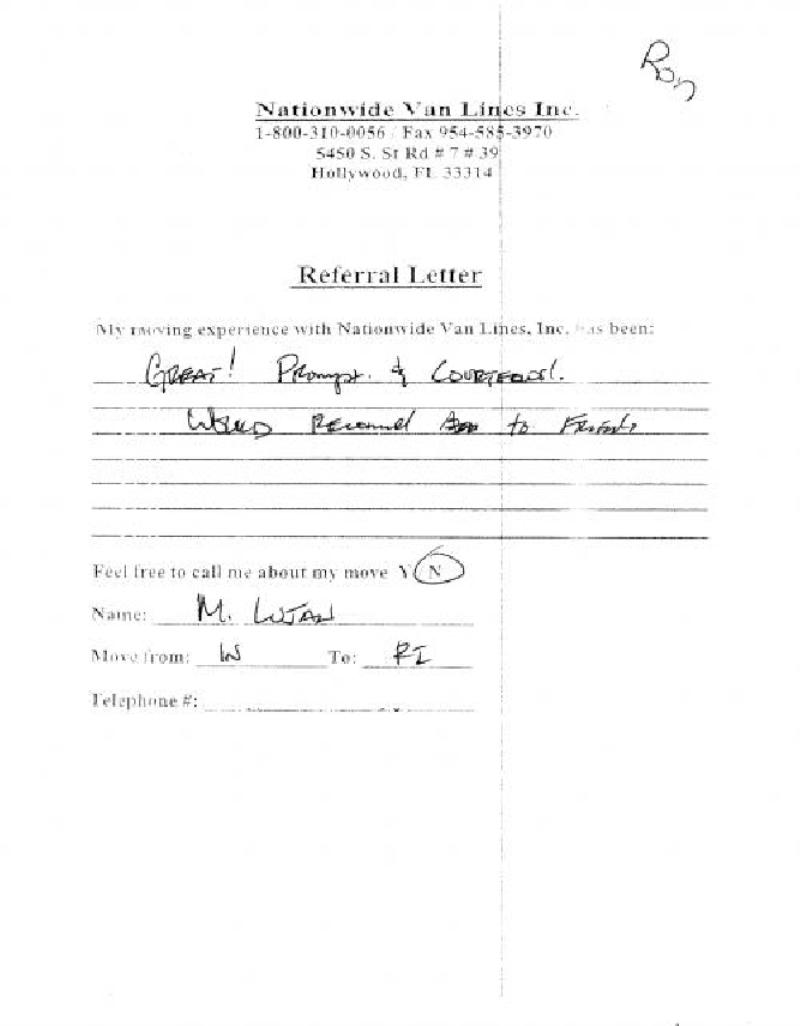 Ron
Nationwide Van Lines Inc.
1-800-310-0056 / Fax 954-585-3970
5450 S. St Rd # 7 # 39
Hollywood, FL 33314
Referral Letter
My moving experience with Nationwide Van Lines, Inc. has been:
GREAT! Prompt & COURTEOUS!.
WOULD Recommend to FRIENDS
Feel free to call me about my move Y N
Name: M. LUJAN
Move from: IN To: RI
Telephone #: